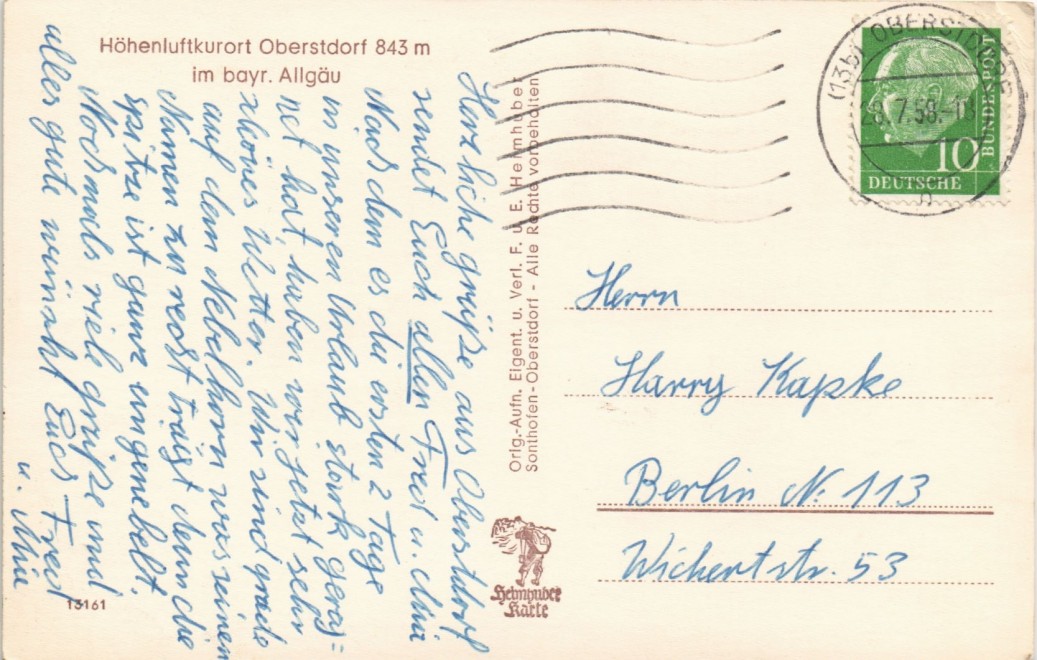 Höhenluftkurort Oberstdorf 843 m
im bayr. Allgäu
Herzliche Grüße aus Oberstdorf
sendet Euch allen Fred u.
Nachdem es die ersten 2 Tage
in unseren Urlaub stark gereg=
net hat, haben wir jetzt sehr
schönes Wetter. Wir sind grade
auf dem Nebelhorn was seinen
Namen zu recht trägt denn die
spitze ist ganz eingenebelt.
Nochmals viele grüße und
alles gute wünscht Euch Fred
u.
Orig.-Aufn. Eigent. u. Verl. F. u. E. Heimhuber
Sonthofen-Oberstdorf - Alle Rechte vorbehalten
(13b) OBERSTDORF
28.7.58.-18
DEUTSCHE
BUNDESPOST
10
Herrn
Harry Kapke
Berlin N. 113
Wichertstr. 53
Heimhuber
Karte
13161